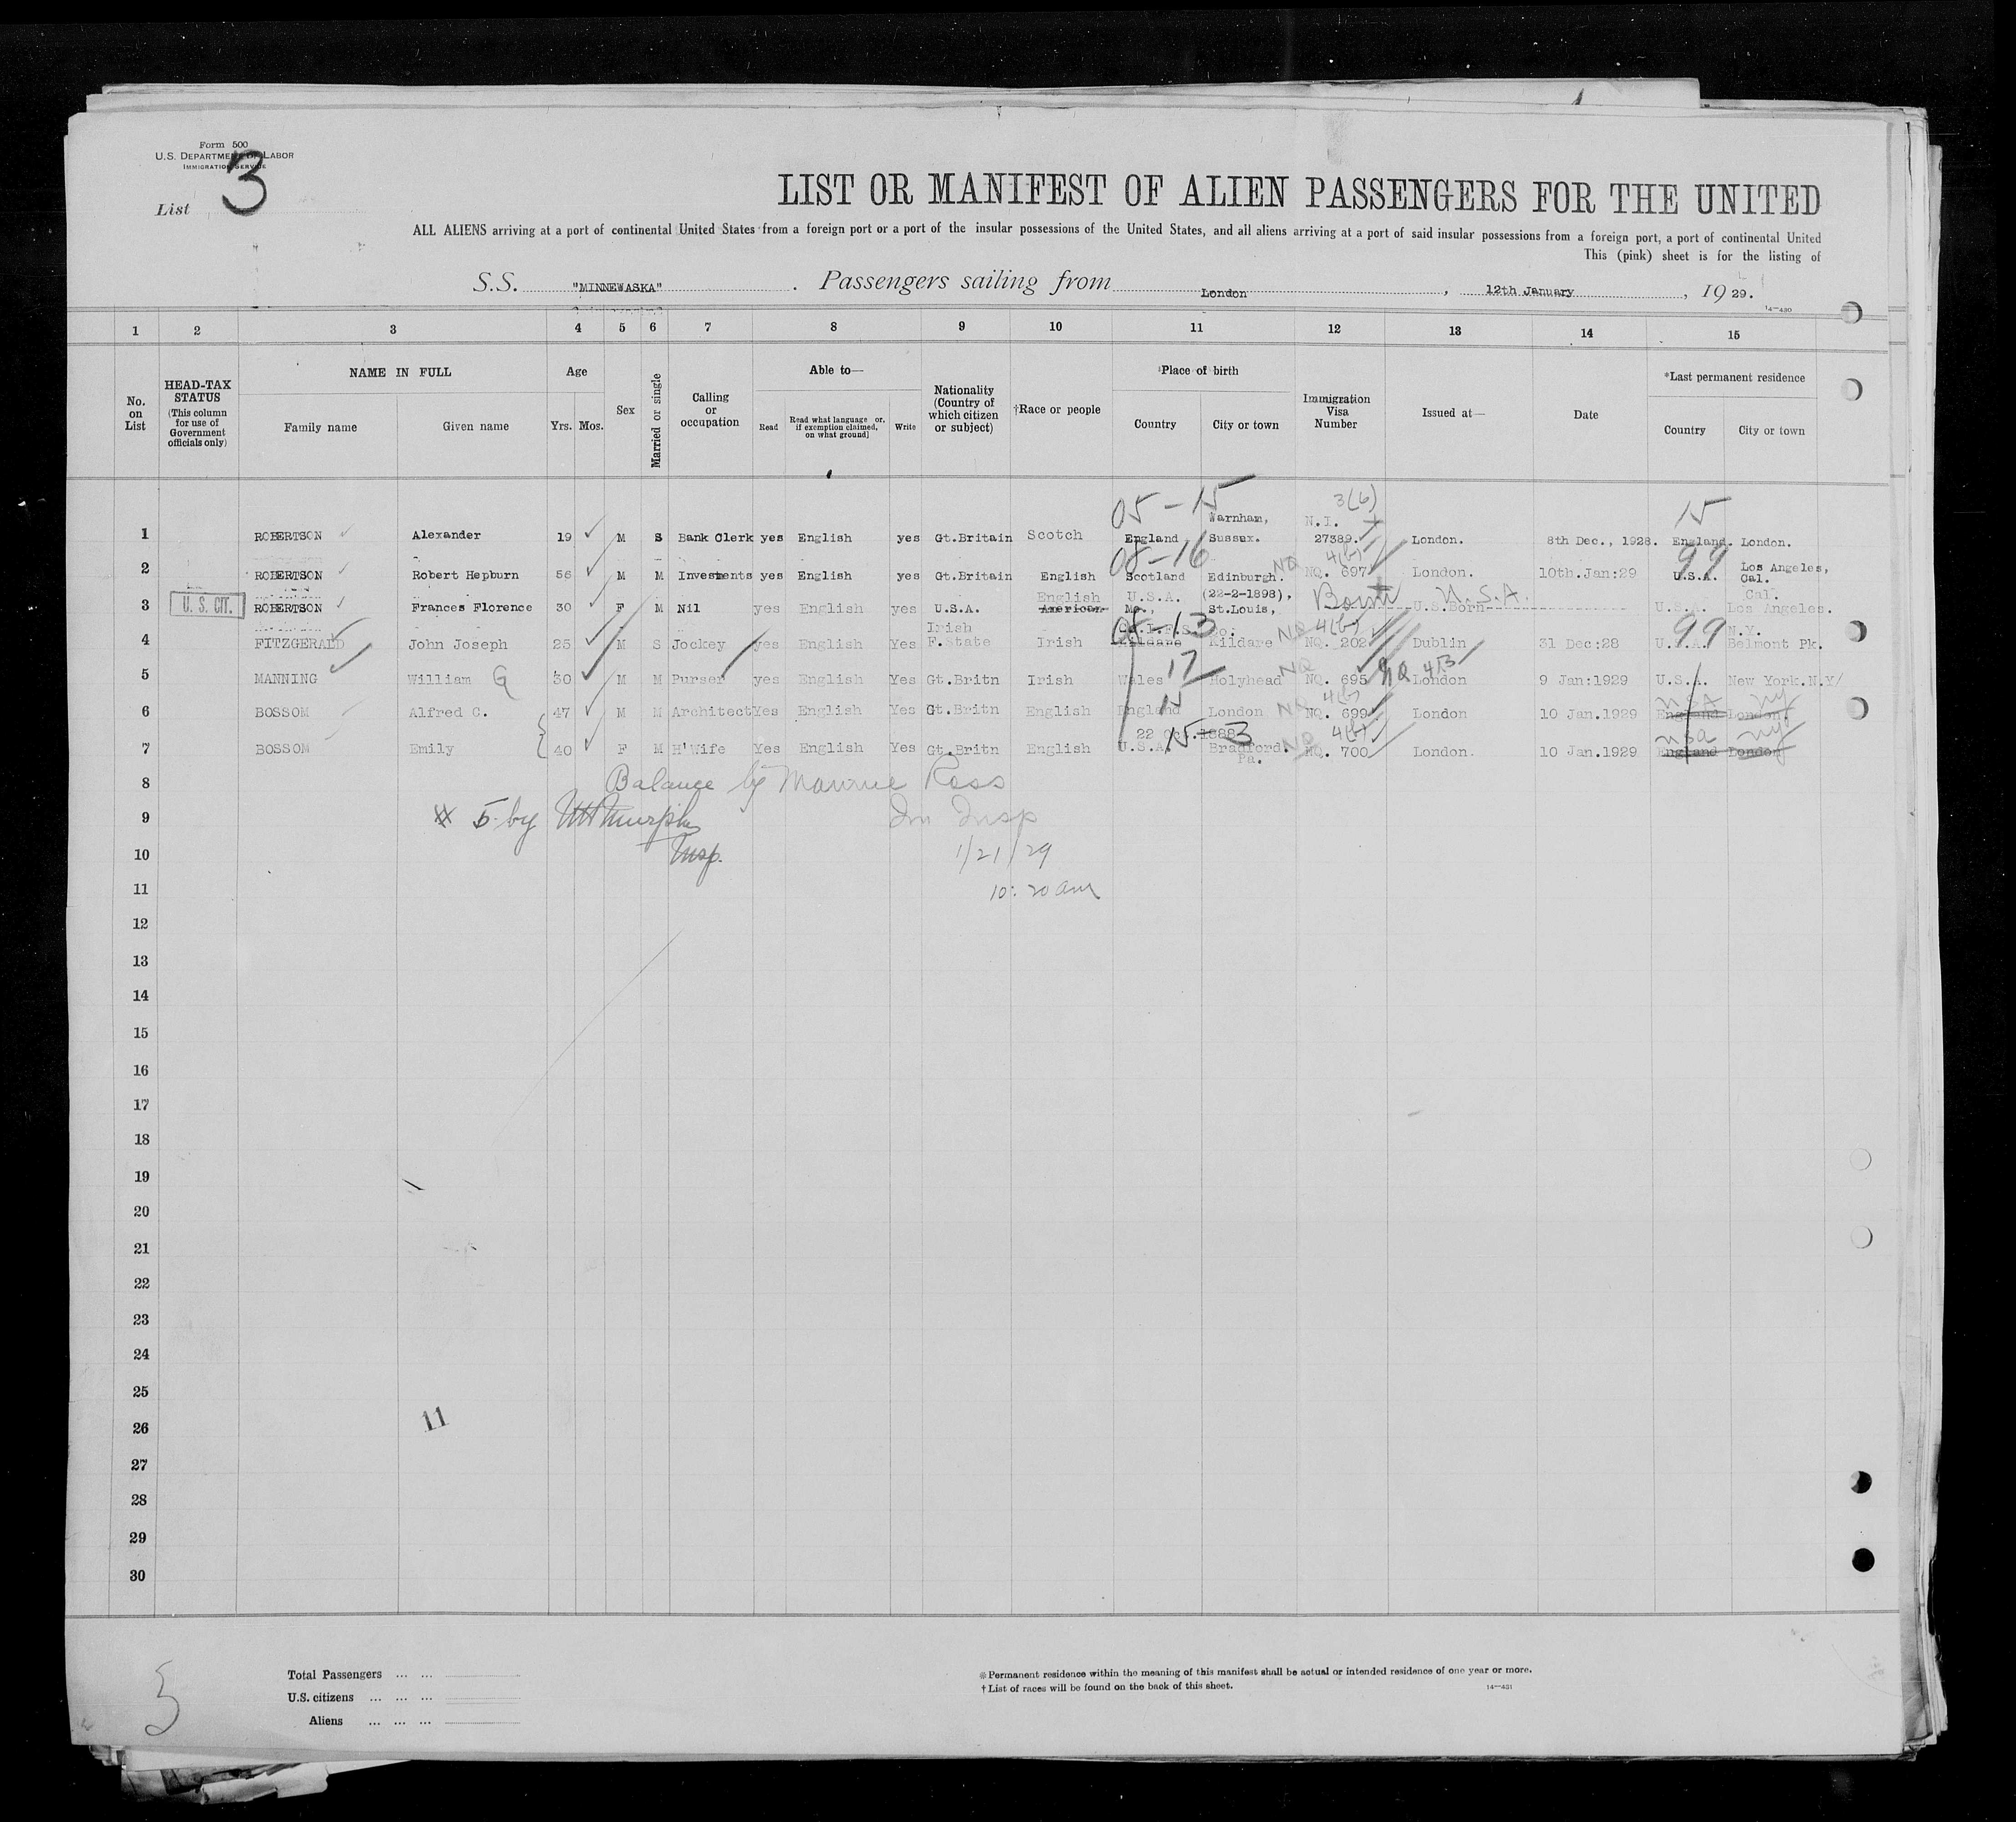 Form 500
U.S. DEPARTMENT OF LABOR
IMMIGRATION SERVICE
List 3
LIST OR MANIFEST OF ALIEN PASSENGERS FOR THE UNITED
ALL ALIENS arriving at a port of continental United States from a foreign port or a port of the insular possessions of the United States, and all aliens arriving at a port of said insular possessions from a foreign port, a port of continental United
This (pink) sheet is for the listing of
S.S. "MINNEWASKA". Passengers sailing from London, 12th January, 1929.
14—430
1 2 3 4 5 6 7 8 9 10 11 12 13 14 15
No. on List
HEAD-TAX STATUS (This column for use of Government officials only)
NAME IN FULL Family name Given name
Age Yrs. Mos.
Sex
Married or single
Calling or occupation
Able to— Read Read what language or, if exemption claimed, on what ground] Write
Nationality (Country of which citizen or subject)
†Race or people
‡Place of birth Country City or town
Immigration Visa Number
Issued at—
Date
*Last permanent residence Country City or town
05-15 3(b) 15
Warnham, N.I.
1 ROBERTSON Alexander 19 M S Bank Clerk yes English yes Gt.Britain Scotch England Sussex. 27389. London. 8th Dec., 1928. England. London.
08-16 NQ 4(b) 99
2 ROBERTSON Robert Hepburn 56 M M Investments yes English yes Gt.Britain English Scotland Edinburgh. NQ. 697 London. 10th.Jan:29 U.S.A. Los Angeles, Cal.
English U.S.A. (22-2-1898), Born U.S.A. Cal.
3 U.S. CIT. ROBERTSON Frances Florence 30 F M Nil yes English yes U.S.A. American Mo., St.Louis, U.S.Born U.S.A. Los Angeles.
Irish 13 NQ 4(b) 99 N.Y.
4 FITZGERALD John Joseph 25 M S Jockey yes English Yes F.State Irish Kildare NQ. 202 Dublin 31 Dec:28 U.S.A. Belmont Pk.
17 NQ NQ 4B
5 MANNING William G 30 M M Purser yes English Yes Gt.Britn Irish Wales Holyhead NQ. 695 London 9 Jan:1929 U.S.A. New York.N.Y/
15 NQ 4(b) USA NY
6 BOSSOM Alfred C. 47 M M Architect Yes English Yes Gt.Britn English England London NQ. 699 London 10 Jan.1929 England London.
22 Oct.1888 15-3 NQ 4(b) USA NY
7 BOSSOM Emily 40 F M H'Wife Yes English Yes Gt.Britn English U.S.A. Bradford. Pa. NQ. 700 London. 10 Jan.1929 England London
8 Balance by Ross
9 5 by Murphy Im Insp
10 Insp. 1/21/29
11 10:20 am
12
13
14
15
16
17
18
19
20
21
22
23
24
25
26 11
27
28
29
30
5
Total Passengers ... ...
U.S. citizens ... ... ...
Aliens ... ... ...
*Permanent residence within the meaning of this manifest shall be actual or intended residence of one year or more.
†List of races will be found on the back of this sheet.
14—431